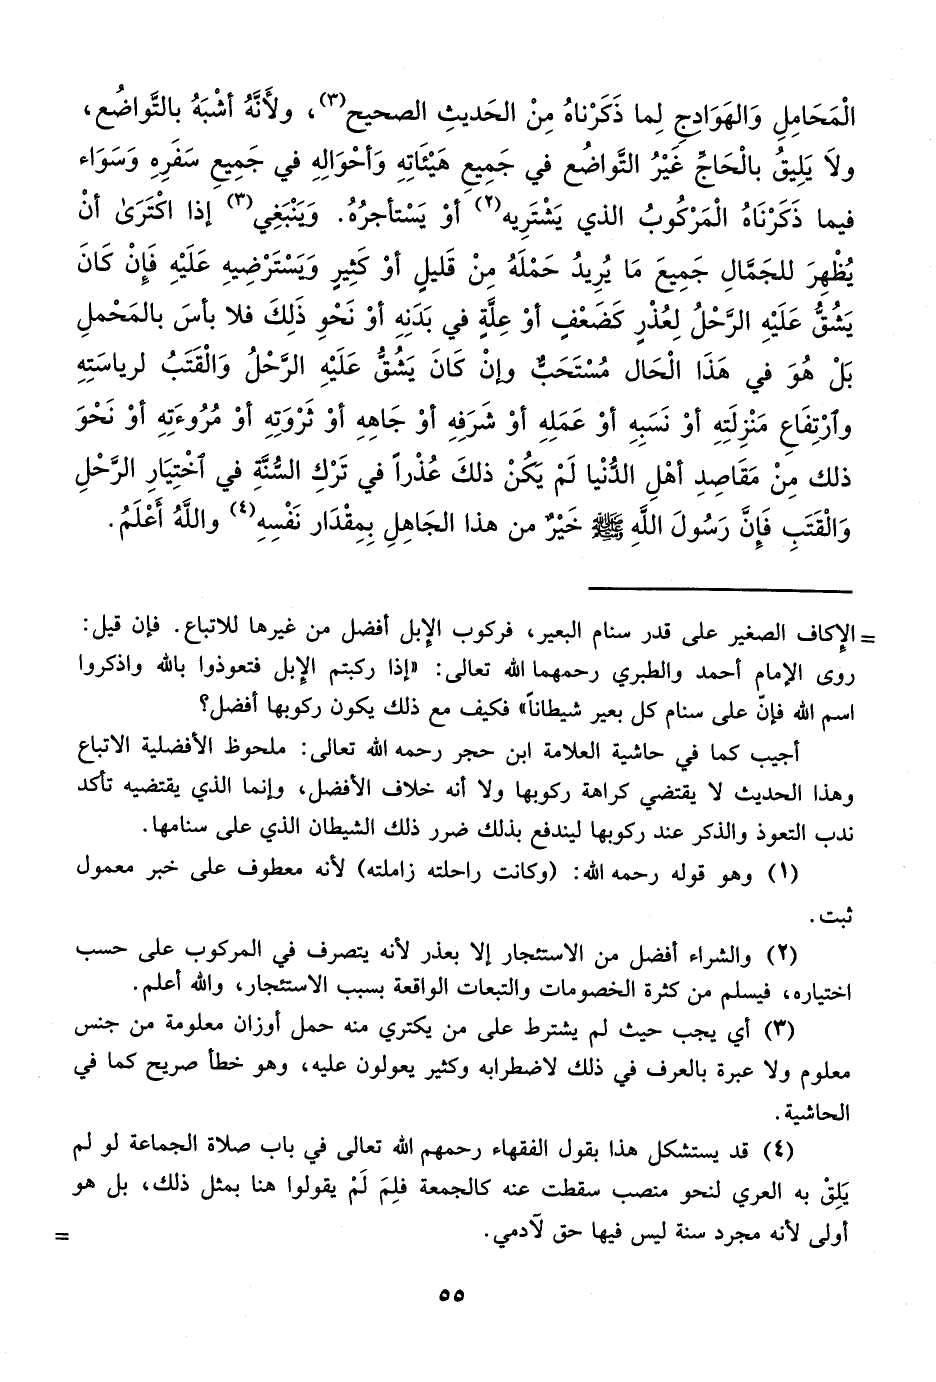 الْمَحَامِلِ وَالهَوَادِجِ لِما ذَكَرْناهُ مِنْ الحَديثِ الصحيح(٣)، ولأَنَّهُ أشْبَهُ بالتَّواضُع،
ولاَ يَلِيقُ بالْحَاجِّ غَيْرُ التَّواضُع في جَمِيعِ هَيْئَاتِهِ وَأَحْوَالِهِ في جَمِيعِ سَفَرِهِ وَسَوَاء
فيما ذَكَرْنَاهُ الْمَرْكُوبُ الذي يَشْتَرِيه(٢) أوْ يَسْتأجرُهُ. وَيَنْبَغِي(٣) إذا اكْتَرَىٰ أنْ
يُظْهِرَ للجَمَّالِ جَمِيعَ مَا يُرِيدُ حَمْلَهُ مِنْ قَلِيلٍ أوْ كَثِيرٍ وَيَسْتَرْضِيهِ عَلَيْهِ فَإِنْ كَانَ
يَشُقُّ عَلَيْهِ الرَّحْلُ لِعُذْرٍ كَضَعْفٍ أوْ عِلَّةٍ في بَدَنِهِ أوْ نَحْوِ ذَلِكَ فلا بأسَ بالمَحْمل
بَلْ هُوَ في هَذَا الْحَال مُسْتَحَبٌّ وإنْ كَانَ يَشُقُّ عَلَيْهِ الرَّحْلُ وَالْقَتَبُ لرياسَتِهِ
وٱرْتِفَاعِ مَنْزِلَتِهِ أوْ نَسَبِهِ أوْ عَمَلِهِ أوْ شَرَفِهِ أوْ جَاهِهِ أوْ ثَرْوَتِهِ أوْ مُرُوءَتِهِ أوْ نَحْوَ
ذلك مِنْ مَقَاصِدِ أهْلِ الدُّنْيا لَمْ يَكُنْ ذلكَ عُذْراً في تَرْكِ السُّنَّةِ في ٱخْتِيَارِ الرَّحْلِ
وَالْقَتَبِ فَإِنَّ رَسُولَ اللَّهِ ﷺ خَيْرٌ من هذا الجَاهِلِ بِمِقْدَار نَفْسِهِ(٤) واللَّهُ أَعْلَمُ.
= الإِكاف الصغير على قدر سنام البعير، فركوب الإِبل أفضل من غيرها للاتباع. فإن قيل:
روى الإمام أحمد والطبري رحمهما الله تعالى: «إذا ركبتم الإِبل فتعوذوا بالله واذكروا
اسم الله فإنّ على سنام كل بعير شيطاناً» فكيف مع ذلك يكون ركوبها أفضل؟
أجيب كما في حاشية العلامة ابن حجر رحمه الله تعالى: ملحوظ الأفضلية الاتباع
وهذا الحديث لا يقتضي كراهة ركوبها ولا أنه خلاف الأفضل، وإنما الذي يقتضيه تأكد
ندب التعوذ والذكر عند ركوبها ليندفع بذلك ضرر ذلك الشيطان الذي على سنامها.
(١) وهو قوله رحمه الله: (وكانت راحلته زاملته) لأنه معطوف على خبر معمول
ثبت.
(٢) والشراء أفضل من الاستئجار إلا بعذر لأنه يتصرف في المركوب على حسب
اختياره، فيسلم من كثرة الخصومات والتبعات الواقعة بسبب الاستئجار، والله أعلم.
(٣) أي يجب حيث لم يشترط على من يكتري منه حمل أوزان معلومة من جنس
معلوم ولا عبرة بالعرف في ذلك لاضطرابه وكثير يعولون عليه، وهو خطأ صريح كما في
الحاشية.
(٤) قد يستشكل هذا بقول الفقهاء رحمهم الله تعالى في باب صلاة الجماعة لو لم
يَلِقْ به العري لنحو منصب سقطت عنه كالجمعة فلِمَ لَمْ يقولوا هنا بمثل ذلك، بل هو
أولى لأنه مجرد سنة ليس فيها حق لآدمي. =
٥٥